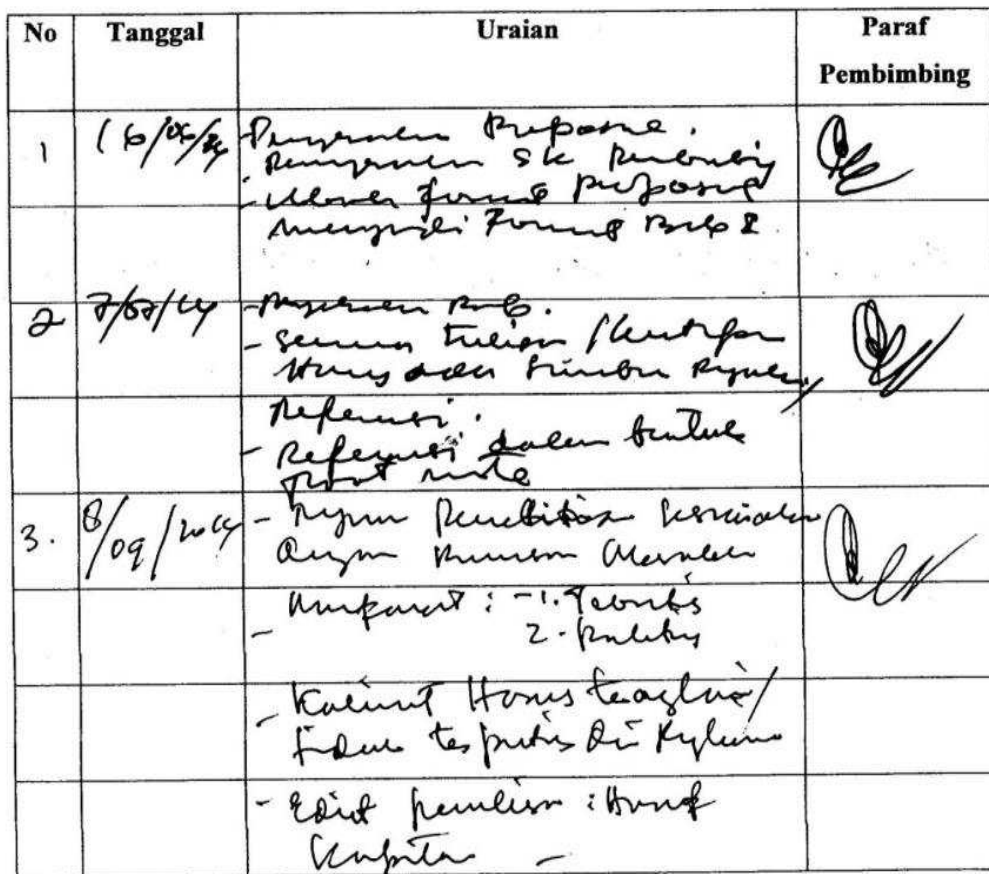 No Tanggal Uraian Paraf
Pembimbing
1 16/06/24 - Penyerahan Proposal.
- Penyerahan SK
- format proposal
menjadi Format Bab I
2 7/07/24 -
- Semua tulisan / kutipan
Harus ada sumber
Referensi.
- Referensi dalam bentuk
foot note
3. 8/09/2024 - Tujuan Penelitian sesuaikan
dengan Rumusan Masalah
- Manfaat : - 1. Teoritis
2. Praktis
- Kalimat Harus
tidak terputus di
- Edit penulisan : Huruf
Kapital -